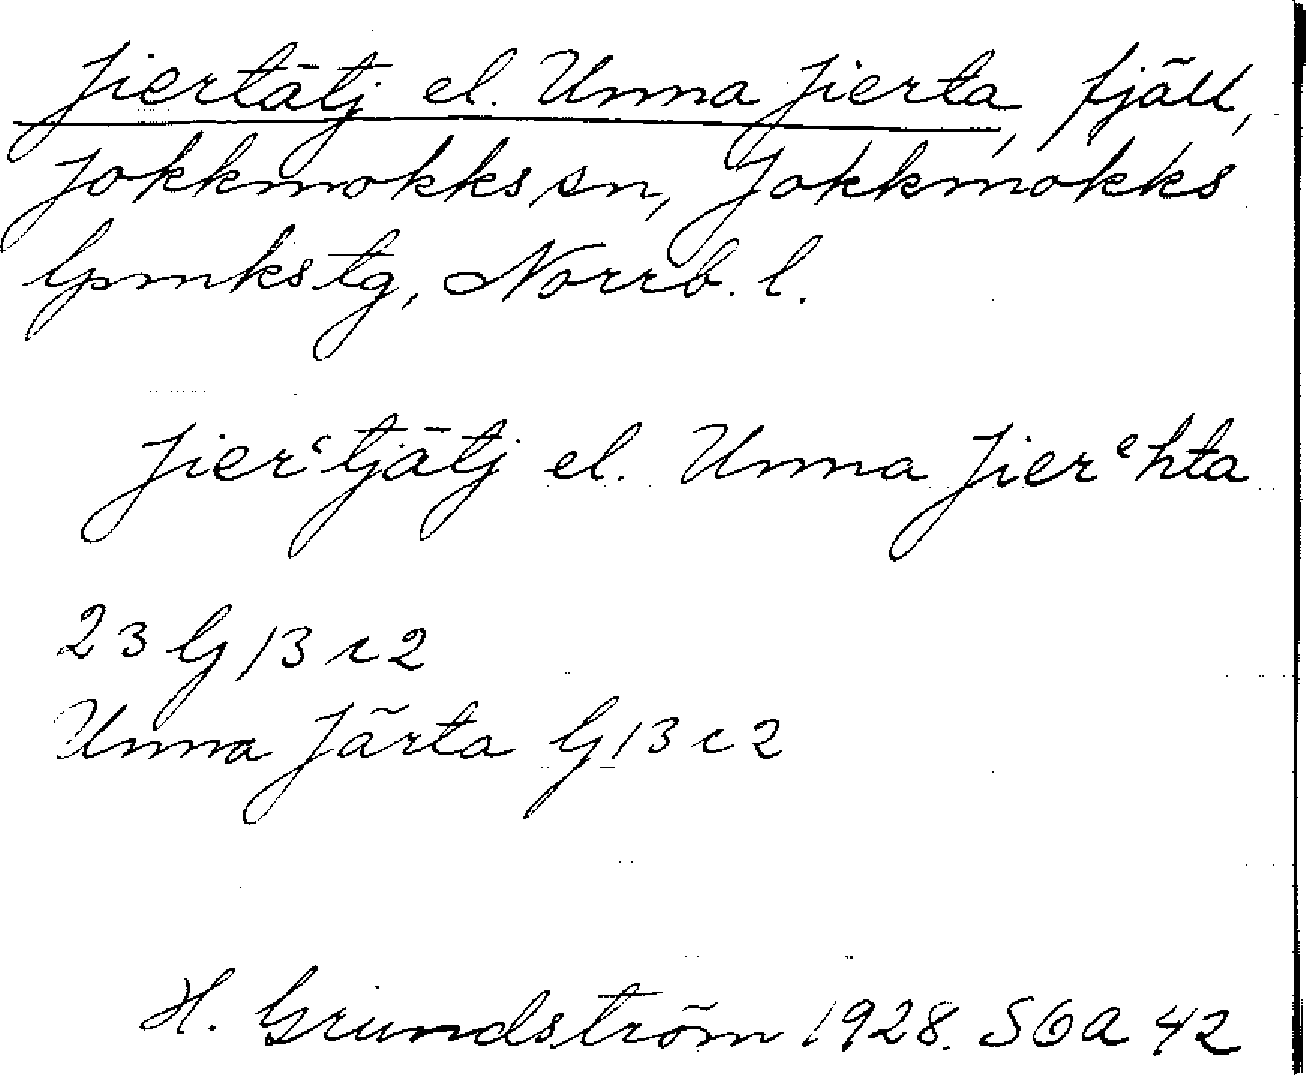 Jiertātj el. Unna Jierta, fjäll,
Jokkmokks sn, Jokkmokks
lpmkstg, Norrb. l.
Jierᶜtjātj el. Unna Jierᵉhta
23 G 13 c 2
Unna Järta G 13 c 2
H. Grundström 1928. SOA 42